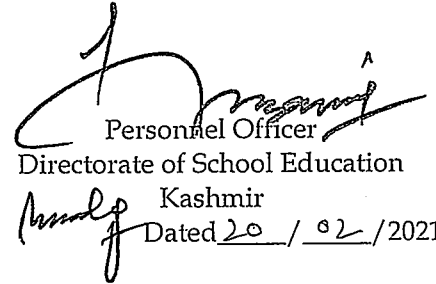 Personnel Officer
Directorate of School Education
Kashmir
Dated 20 / 02 / 2021